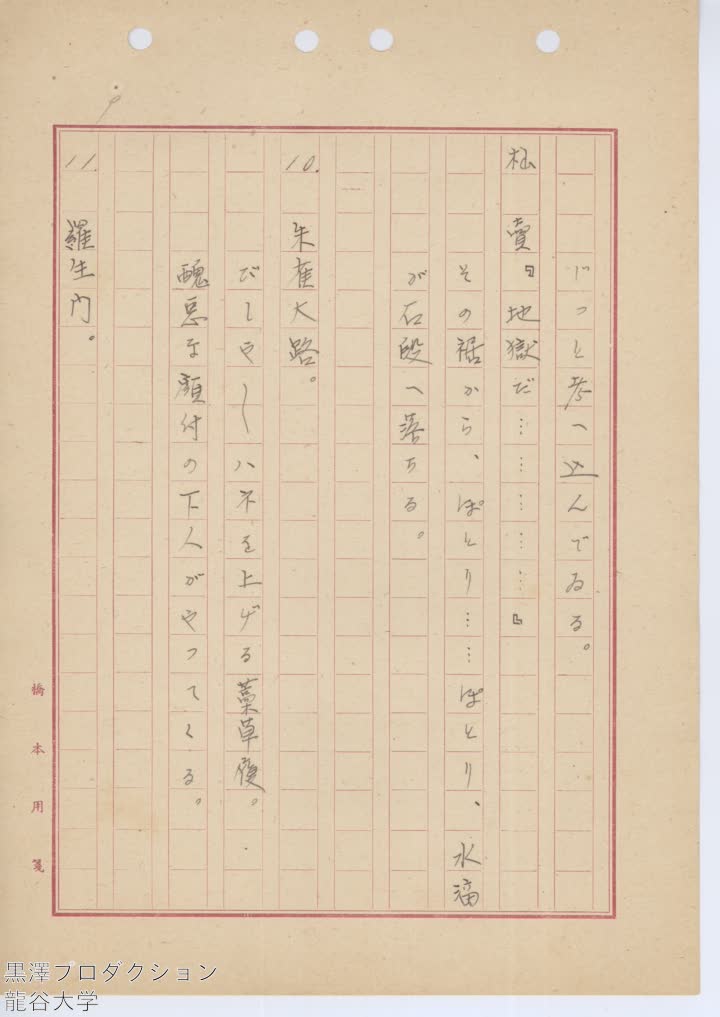 じっと考へ込んでゐる。
杣賣『地獄だ…………』
その裾から、ぽとり……ぽとり、水滴
が石段へ落ちる。
10. 朱雀大路。
びしや〱ハネを上げる藁草履。
醜悪な顔付の下人がやつてくる。
11. 羅生門。
橋本用箋
黒澤プロダクション
龍谷大学